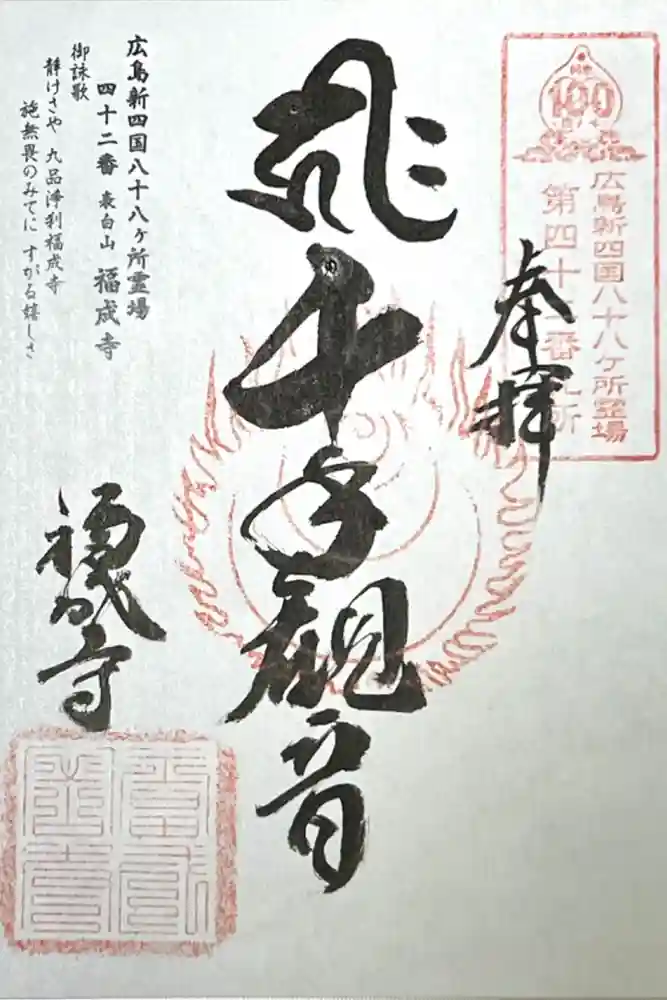 広島新四国八十八ヶ所霊場
第四十二番札所
100
奉拝
千手観音
広島新四国八十八ヶ所霊場
四十二番 表白山 福成寺
御詠歌
静けさや 九品浄刹福成寺
施無畏のみてに すがる嬉しさ
福成寺